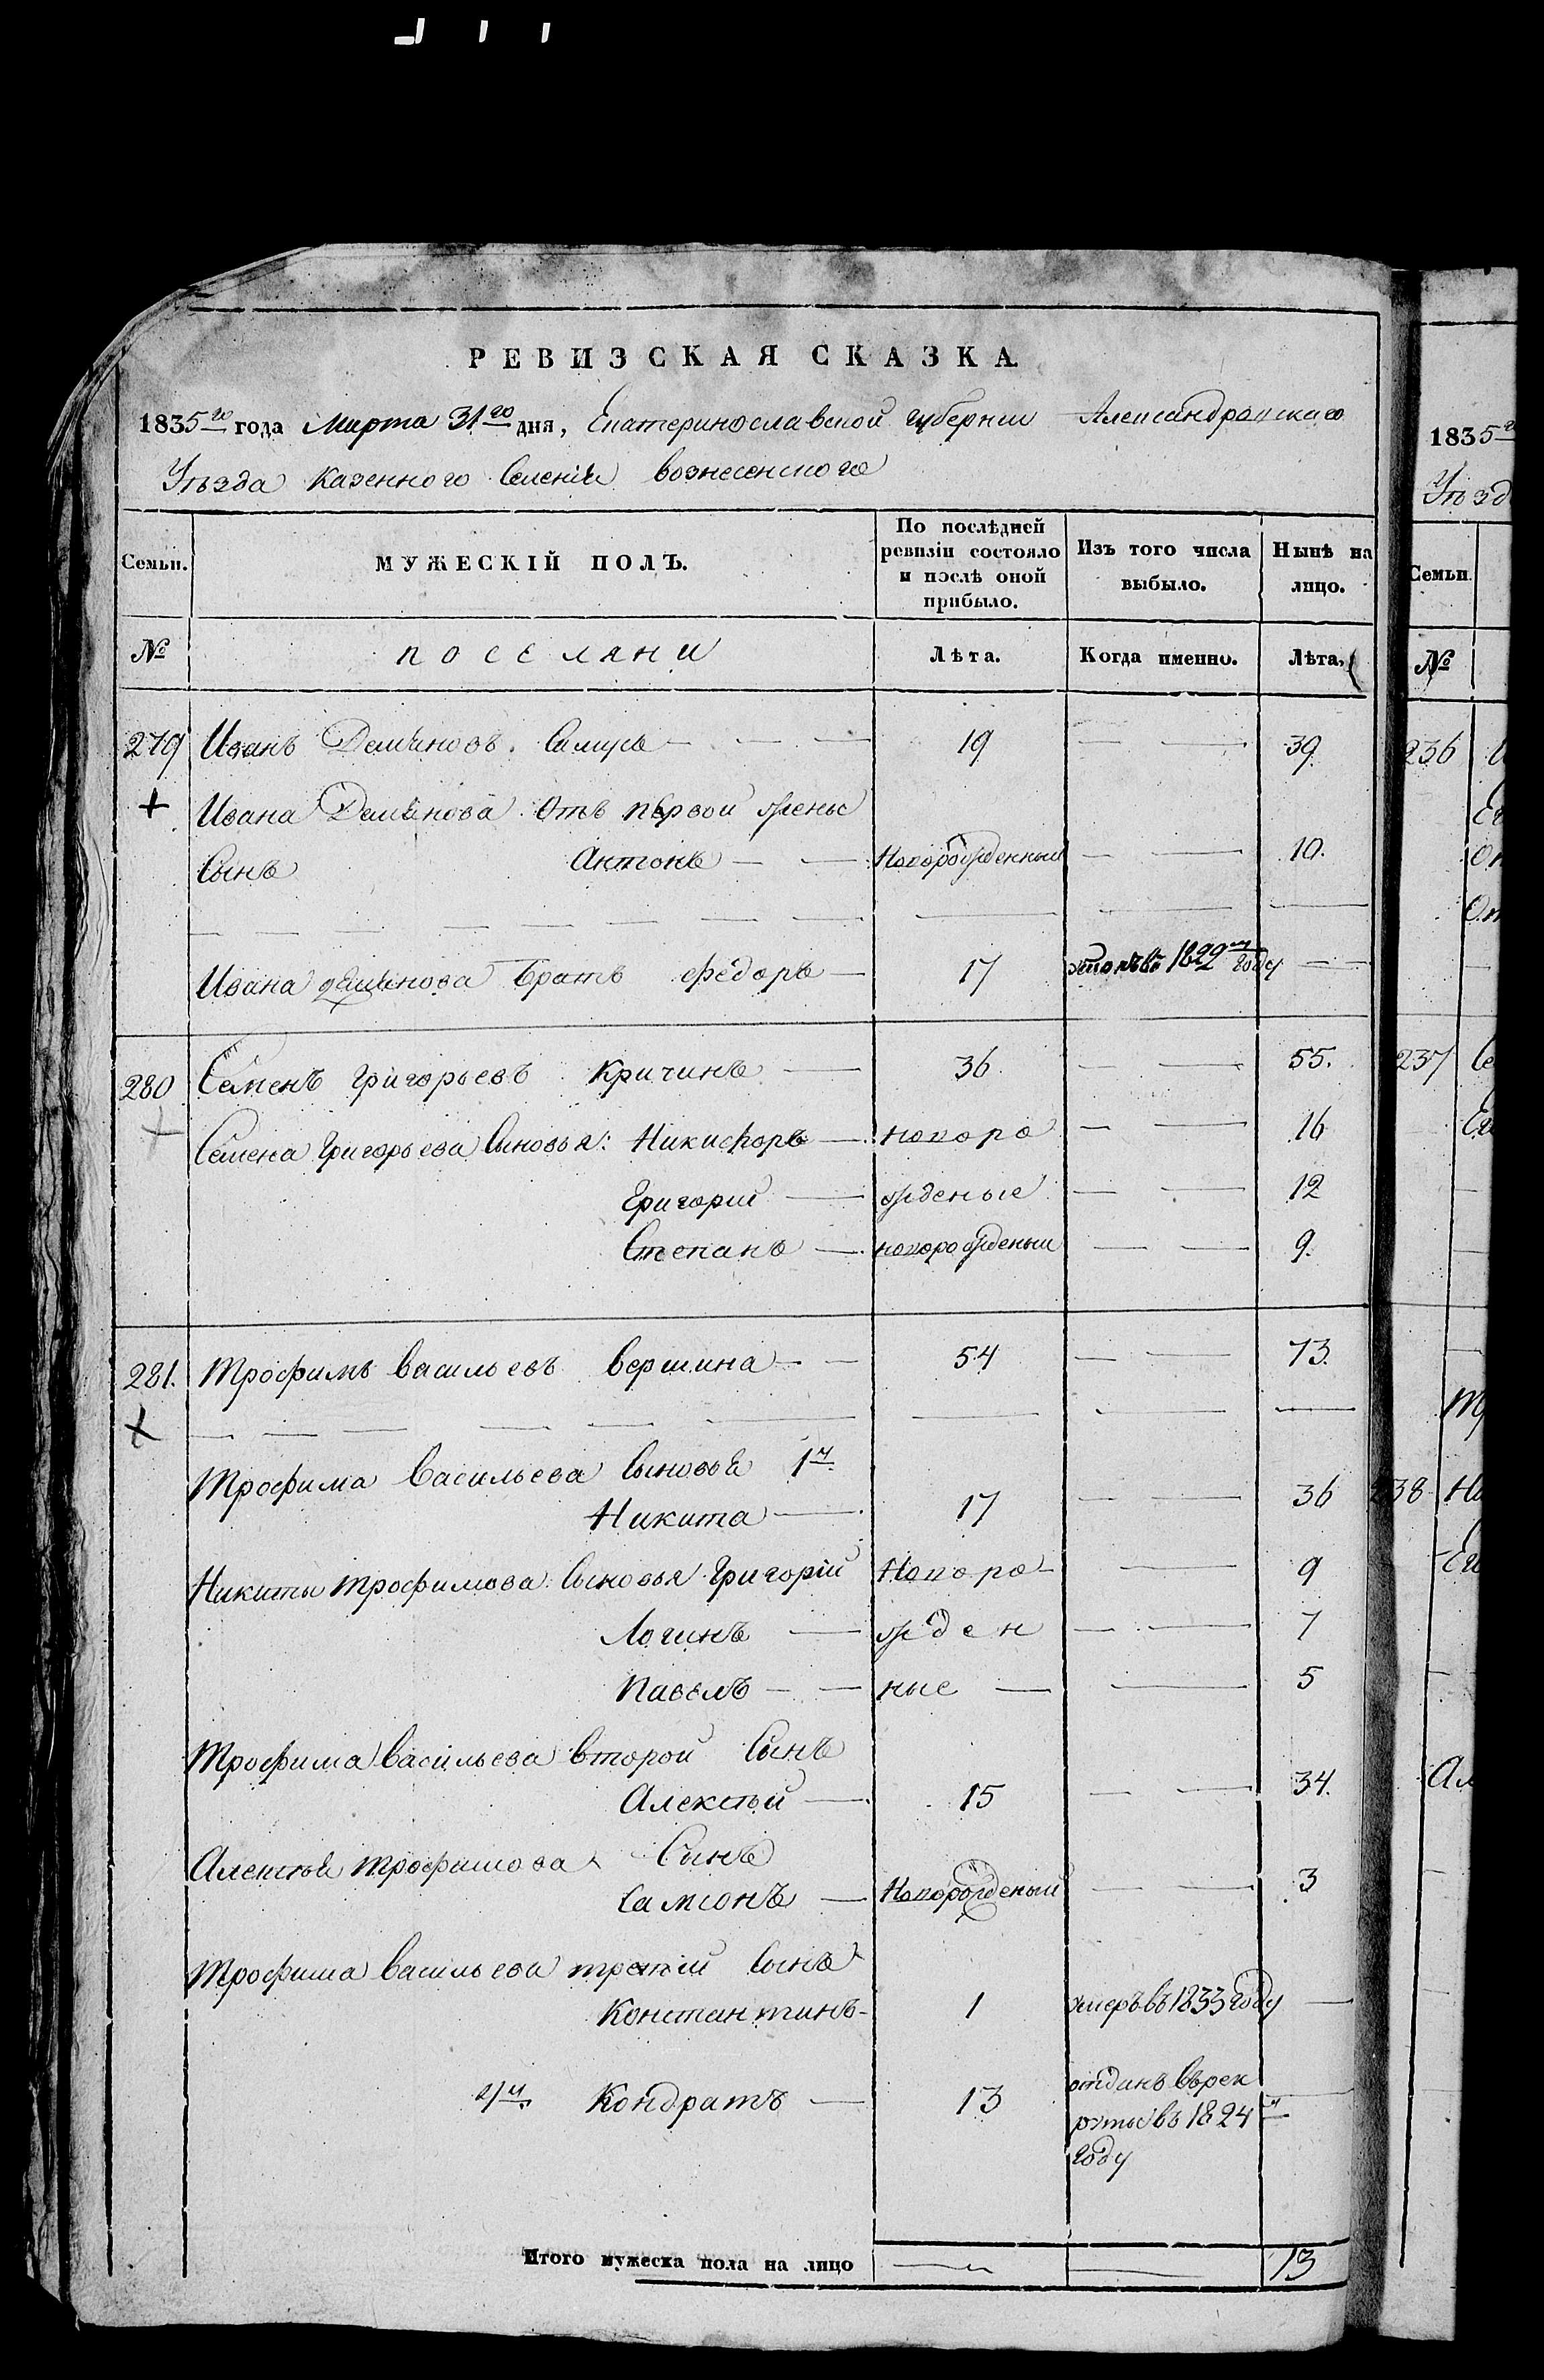 РЕВИЗСКАЯ СКАЗКА.
1835го года Марта 31го дня, Екатеринославской губернии Александровскаго
Уѣзда Казенного Селения Вознесенского
Семьи.
МУЖЕСКІЙ ПОЛЪ.
По послѣдней ревизіи состояло и послѣ оной прибыло.
Изъ того числа выбыло.
Ныне на лицо.
№ поселяни Лѣта. Когда именно. Лѣта.
279 Иванъ Демьяновъ Самусь — — — 19 — — 39
+ Ивана Демьянова отъ первой жены
Сынъ Антонъ — — Новорожденный — — 10.
Ивана демьянова братъ федоръ — 17 1822го году — —
280 Семенъ григорьевъ Кричинъ — 36. — — 55.
+ Семена Григорьева Сыновья: Никифоръ — новоро — — 16
Григорий — жденые — — 12
Степанъ — новорожденый — — 9.
281. Трофимъ васильевъ вершина — — 54 — — 73.
+
Трофима Васильева Сыновья 1й
Никита — 17 — — 36
Никиты трофимова Сыновья Григорій Новоро- — 9
Логинъ — жден — — 7
Павелъ — — ные — — 5
Трофима васильева второй Сынъ
Алексѣй — 15 — — 34.
Алексѣя трофимова Сынъ
Самсонъ — Новорожденый — — 3
Трофима васильева третій сынъ
Константинъ - 1 умеръ въ 1833 году —
4й Кондратъ — 13 отданъ Въ рек
руты въ 1824м
году
Итого мужеска пола на лицо — — 13
1835го
Уѣзд
Семьи.
№
236
237
238